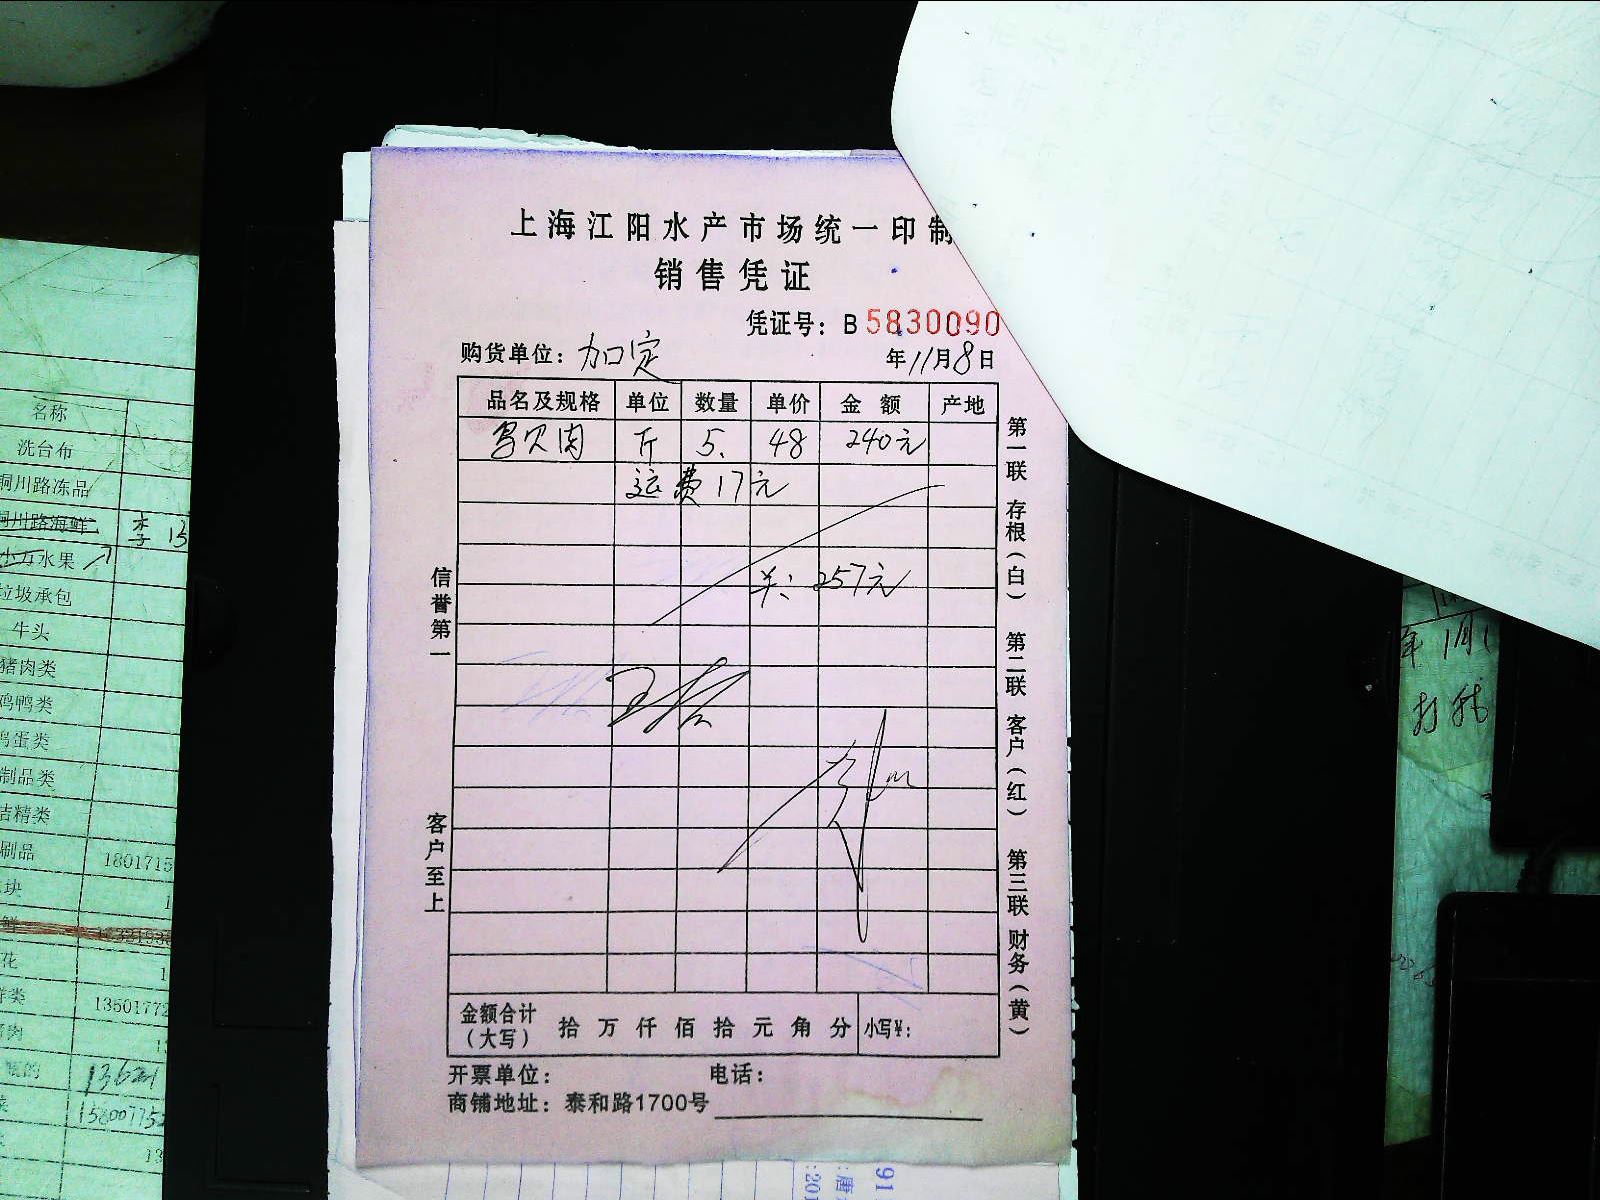 上海江阳水产市场统一印制
销售凭证
凭证号：B 5830090
购货单位：加定 年11月8日
品名及规格 单位 数量 单价 金额 产地
贝肉 斤 5. 48 240元
运费17元
共：257元
信誉第一
客户至上
第一联 存根（白） 第二联 客户（红） 第三联 财务（黄）
金额合计（大写） 拾万仟佰拾元角分 小写¥：
开票单位： 电话：
商铺地址：泰和路1700号
名称
洗台布
铜川路冻品
铜川路海鲜 李 15
水果
垃圾承包
牛头
猪肉类
鸡鸭类
蛋类
制品类
洁精类
刷品 1801715
块
鲜
花
1350177
肉
13621
158007752
13
年1月1
91